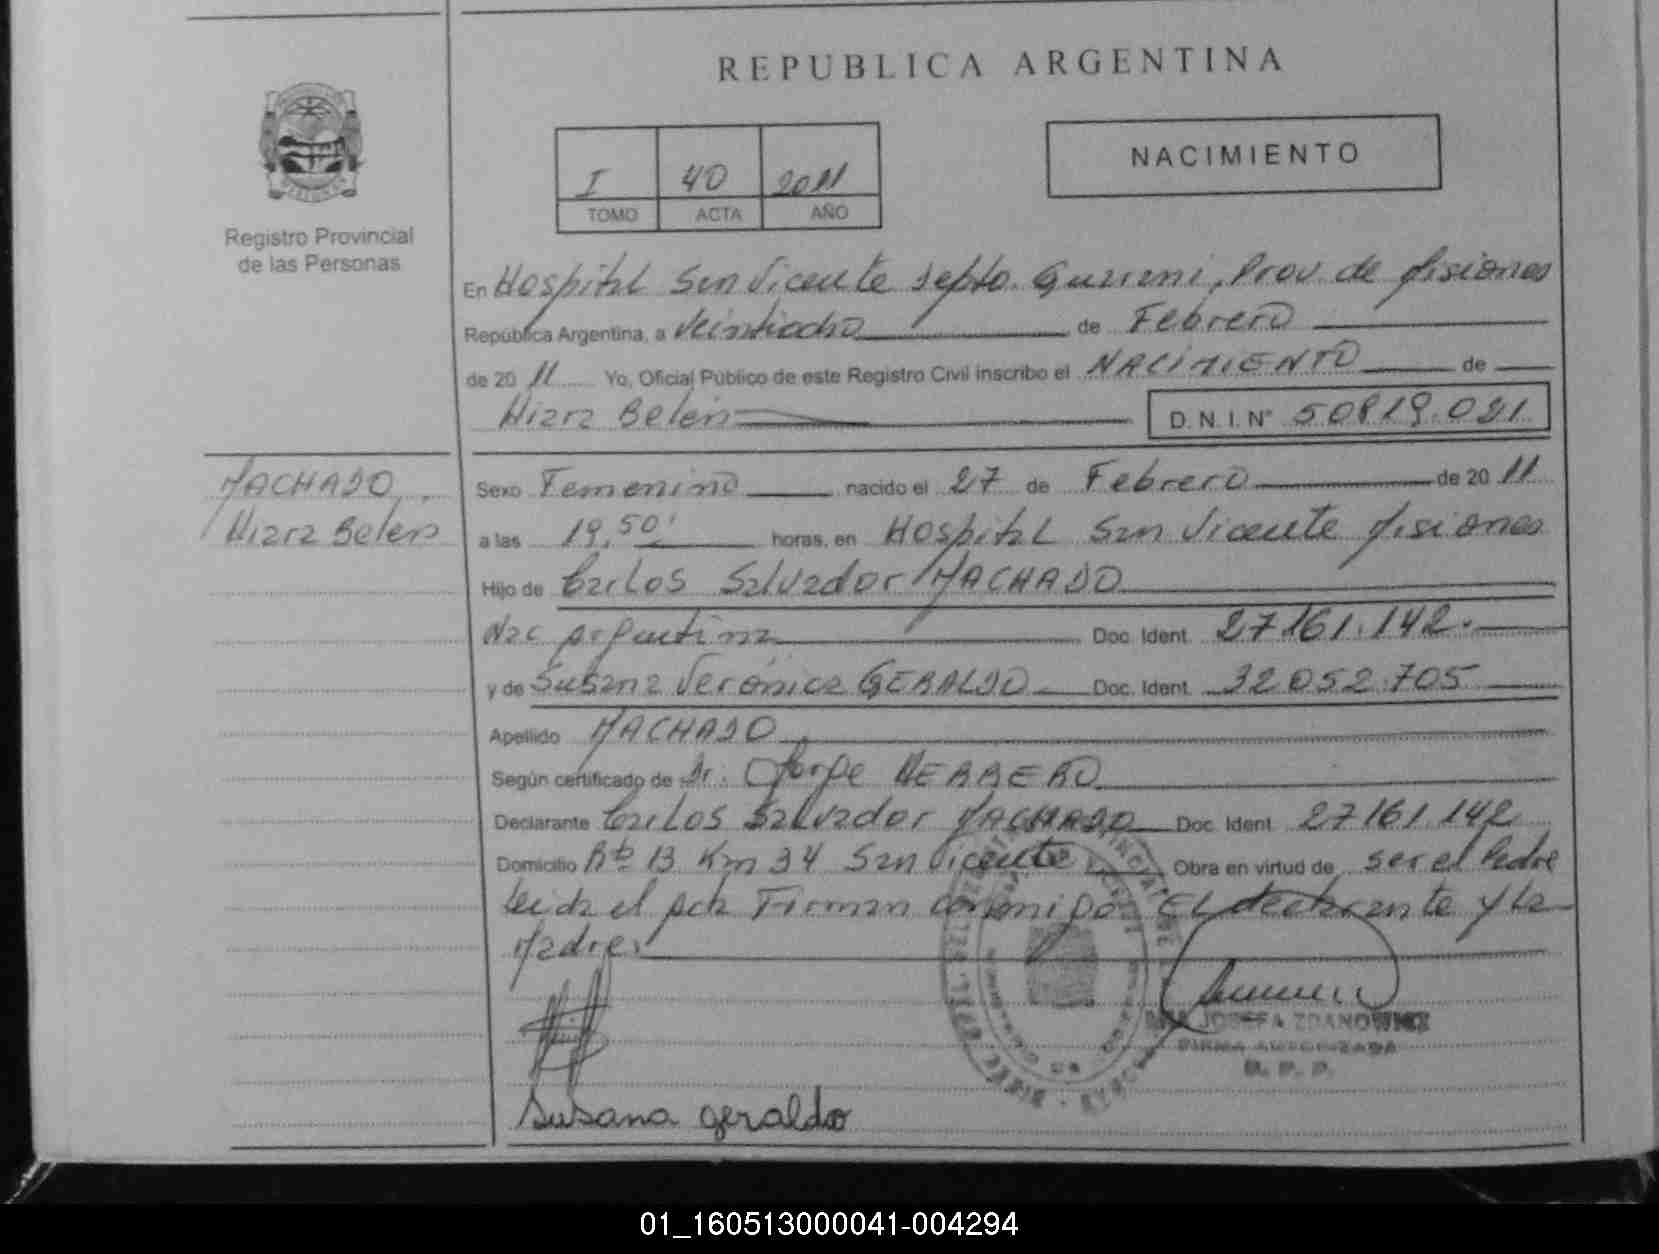 REPUBLICA ARGENTINA
I 40 2011
TOMO ACTA AÑO
NACIMIENTO
Registro Provincial
de las Personas
En Hospital San Vicente Depto. Guaraní, Prov. de Misiones
República Argentina, a Veintiocho de Febrero
de 20 11 Yo, Oficial Público de este Registro Civil inscribo el NACIMIENTO de
Belén D.N.I. Nº 50819.021
MACHADO
Belén
Sexo Femenino nacido el 27 de Febrero de 20 11
a las 19,50' horas, en Hospital San Vicente Misiones
Hijo de Carlos Salvador MACHADO
Nac Argentina Doc. Ident. 27161.142.
y de Susana Verónica GERALDO Doc. Ident. 32052.705
Apellido MACHADO
Según certificado de Dr. Jorge
Declarante Carlos Salvador MACHADO Doc. Ident. 27161.142
Domicilio Rta 13 Km 34 San Vicente Obra en virtud de ser el Padre
Leida el Acta Firman conmigo El declarante y la
Madre.
JOSEFA ZDANOWICZ
FIRMA AUTORIZADA
R. P. P.
Susana geraldo
01_160513000041-004294